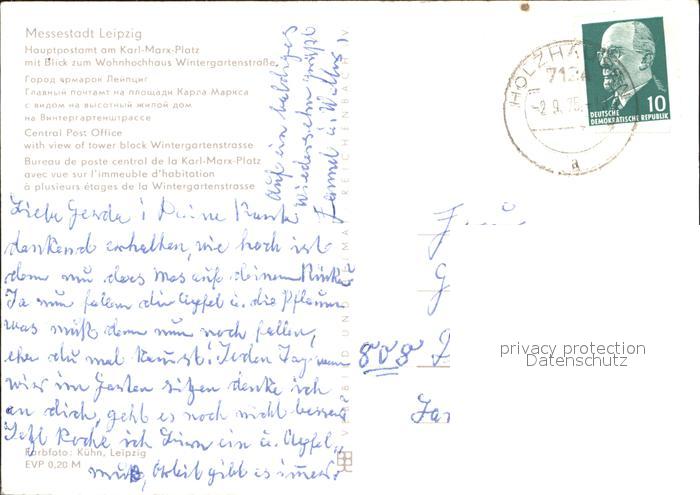 Messestadt Leipzig
Hauptpostamt am Karl-Marx-Platz
mit Blick zum Wohnhochhaus Wintergartenstraße
Город ярмарок Лейпциг
Главный почтамт на площади Карла Маркса
с видом на высотный жилой дом
на Винтергартенштрассе
Central Post Office
with view of tower block Wintergartenstrasse
Bureau de poste central de la Karl-Marx-Platz
avec vue sur l'immeuble d'habitation
à plusieurs étages de la Wintergartenstrasse
Liebe Gerda! Deine Karte
dankend erhalten, wie hoch ist
denn nu das Mas auf deinem
Ja nun fallen die Apfel u. die Pflaumen
was muß denn nun noch fallen,
ehe du mal kommst! Jeden Tag wenn
wir im Garten sitzen denke ich
an dich, geht es noch nicht besser?
Jetzt koche ich Birn ein u. Apfel
mus, Arbeit gibt es immer.
Auf ein baldiges
Wiedersehn grüßt
u. Willy
Farbfoto: Kühn, Leipzig
EVP 0,20 M
REICHENBACH IV
HOLZHAU
712
-2.9.75
a
10
DEUTSCHE
DEMOKRATISCHE REPUBLIK
808
privacy protection
Datenschutz